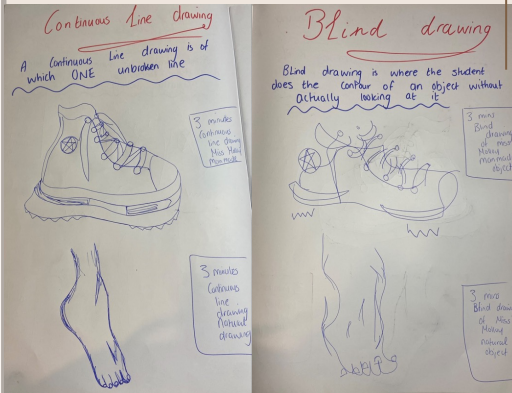 Continuous Line drawing
A Continuous Line drawing is of
which ONE unbroken line
3 minutes
Continuous
line drawing
Miss
Manmade
3 minutes
Continuous
line
drawing
natural
drawing
Blind drawing
Blind drawing is where the student
does the contour of an object without
actually looking at it
3 mins
Blind
drawing
of
manmade
object
3 mins
Blind
of Miss
natural
object